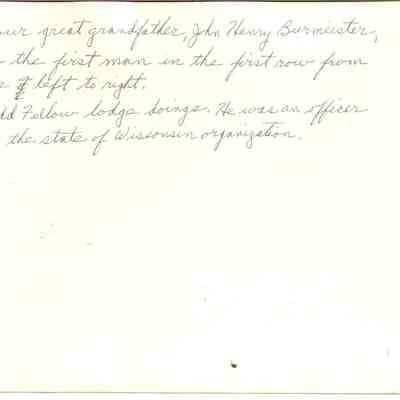 our great grandfather, John Henry Burmeister,
the first man in the first row from
left to right.
dd Fellow lodge doings. He was an officer
the state of Wisconsin organization.